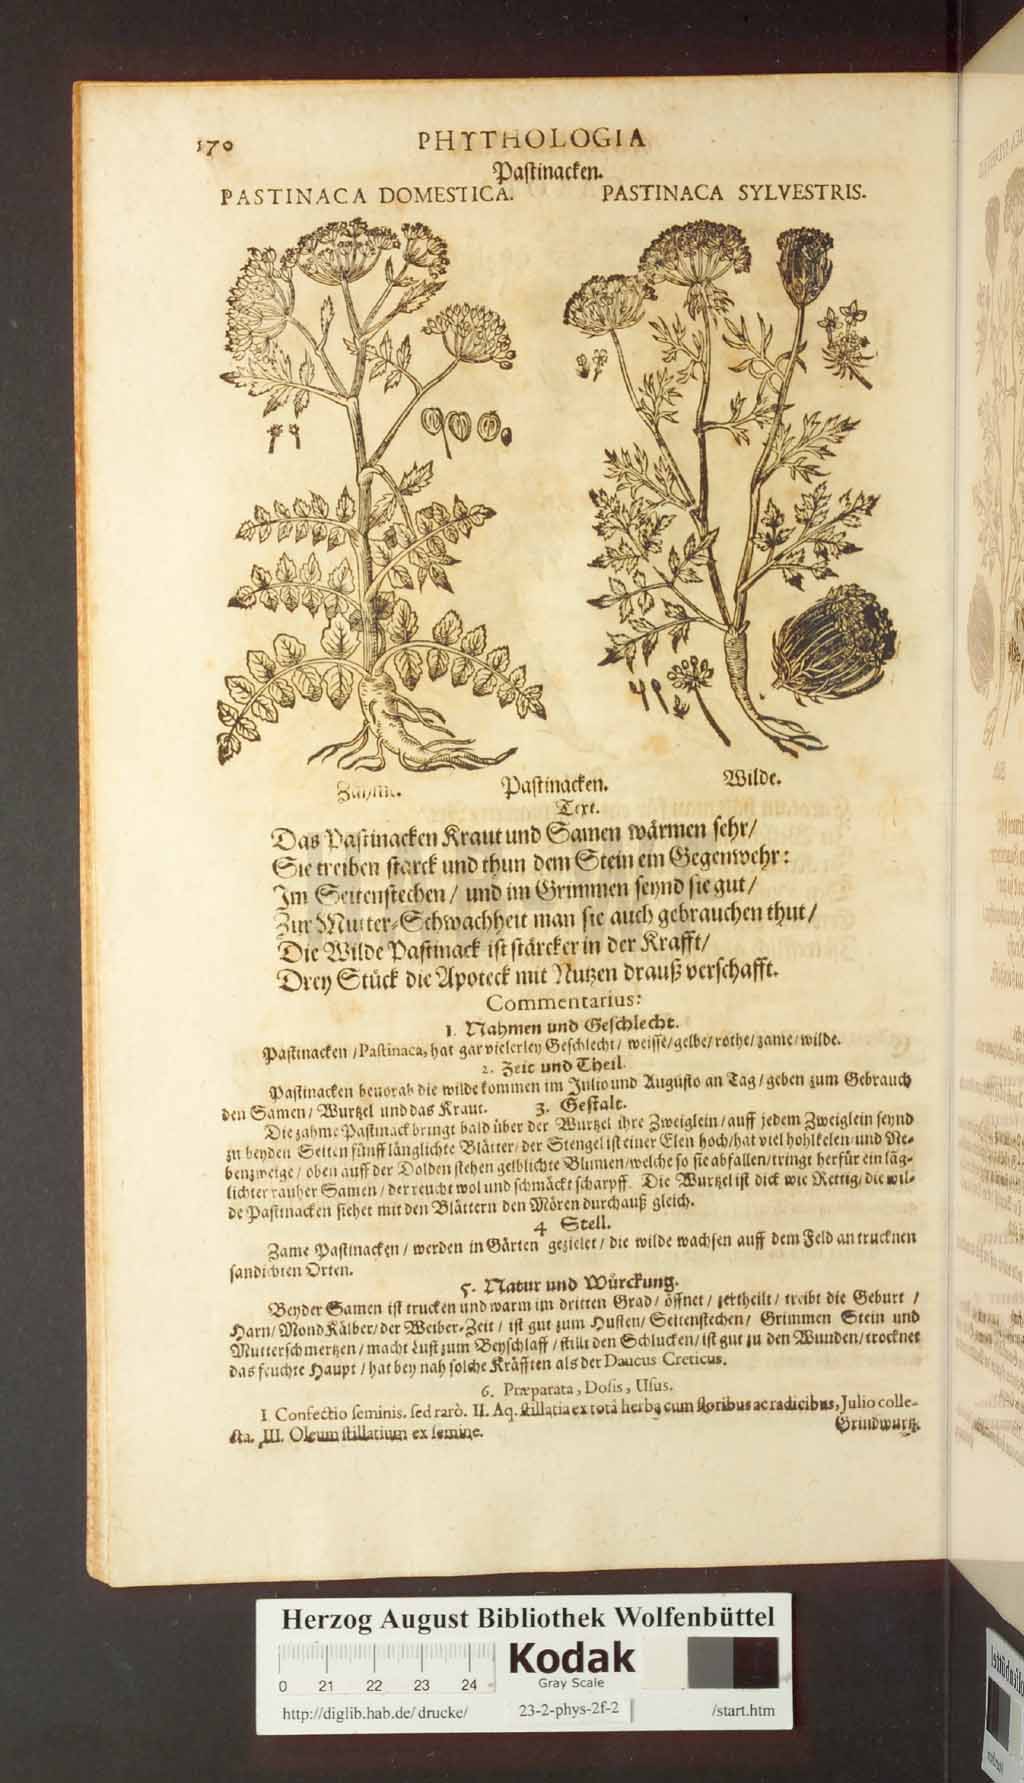 170
PHYTHOLOGIA
Pastinacken.
PASTINACA DOMESTICA. PASTINACA SYLVESTRIS.
Zahme. Pastinacken. Wilde.
Text.
Das Pastinacken Kraut und Samen wärmen sehr/
Sie treiben starck und thun dem Stein ein Gegenwehr:
Im Seitenstechen/ und im Grimmen seynd sie gut/
Zur Mutter-Schwachheit man sie auch gebrauchen thut/
Die Wilde Pastinack ist stärcker in der Krafft/
Drey Stück die Apoteck mit Nutzen drauß verschafft.
Commentarius:
1. Nahmen und Geschlecht.
Pastinacken/Pastinaca, hat gar vielerley Geschlecht/ weisse/gelbe/rothe/zame/wilde.
2. Zeit und Theil.
Pastinacken bevorab die wilde kommen im Julio und Augusto an Tag/geben zum Gebrauch
den Samen/ Wurtzel und das Kraut. 3. Gestalt.
Die zahme Pastinack bringt bald über der Wurtzel ihre Zweiglein/auff jedem Zweiglein seynd
zu beyden Seiten fünff länglichte Blätter/der Stengel ist einer Elen hoch/hat viel hohlkelen/und Ne-
benzweige/oben auff der Dolden stehen gelblichte Blumen/welche so sie abfallen/tringt herfür ein läg-
lichter rauher Samen/der reucht wol und schmäckt scharpff. Die Wurtzel ist dick wie Rettig/die wil-
de Pastinacken siehet mit den Blättern den Mören durchauß gleich.
4 Stell.
Zame Pastinacken/ werden in Gärten gezielet/ die wilde wachsen auff dem Feld an trucknen
sandichten Orten.
5. Natur und Würckung.
Beyder Samen ist trucken und warm im dritten Grad/ öffnet/ zertheilt/ treibt die Geburt/
Harn/MondKälber/der Weiber-Zeit/ ist gut zum Husten/Seitenstechen/ Grimmen Stein und
Mutterschmertzen/macht Lust zum Beyschlaff/stillt den Schlucken/ist gut zu den Wunden/trocknet
das feuchte Haupt/hat bey nah solche Kräfften als der Daucus Creticus.
6. Præparata, Dosis, Usus.
I. Confectio seminis. sed rarò. II. Aq. stillatia ex totâ herba cum floribus ac radicibus, Julio colle-
cta. III. Oleum stillatium ex semine. Grindwurtz.
Herzog August Bibliothek Wolfenbüttel
Kodak
Gray Scale
0 21 22 23 24
http://diglib.hab.de/drucke/ 23-2-phys-2f-2 /start.htm